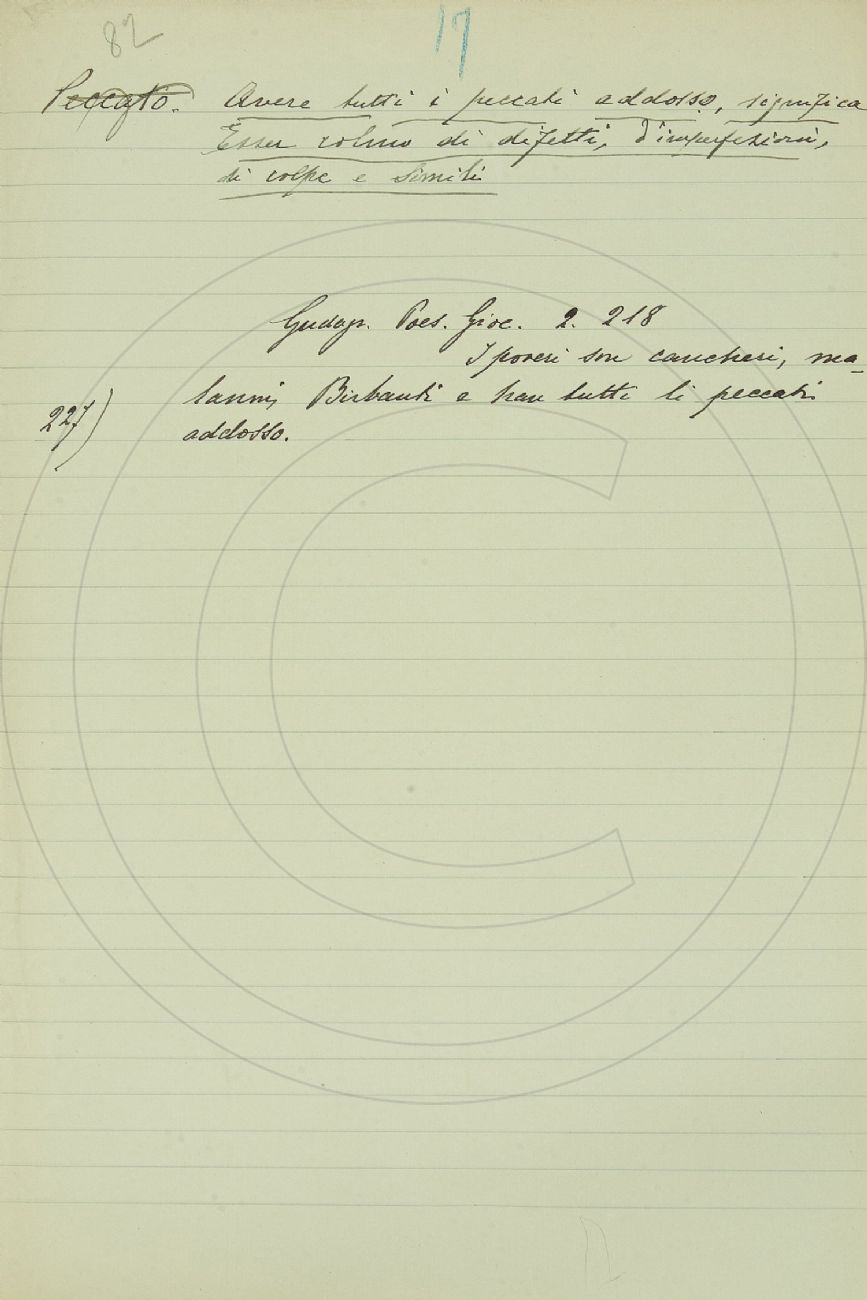 82 17
Peccato. Avere tutti i peccati addosso, significa
Esser colmo di difetti, d'imperfezioni,
di colpe e simili
Guadagn. Poes. Gioc. 2. 218
I poveri son cancheri, ma-
lanni, Birbanti e han tutti li peccati
227) addosso.